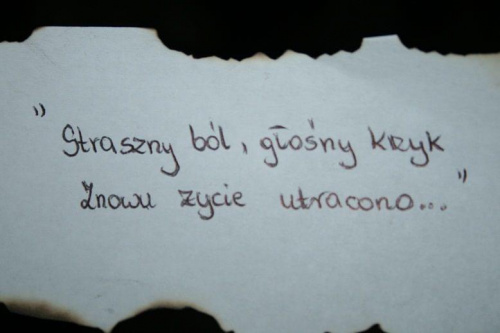 "Straszny ból, głośny krzyk
Znowu zycie utracono..."